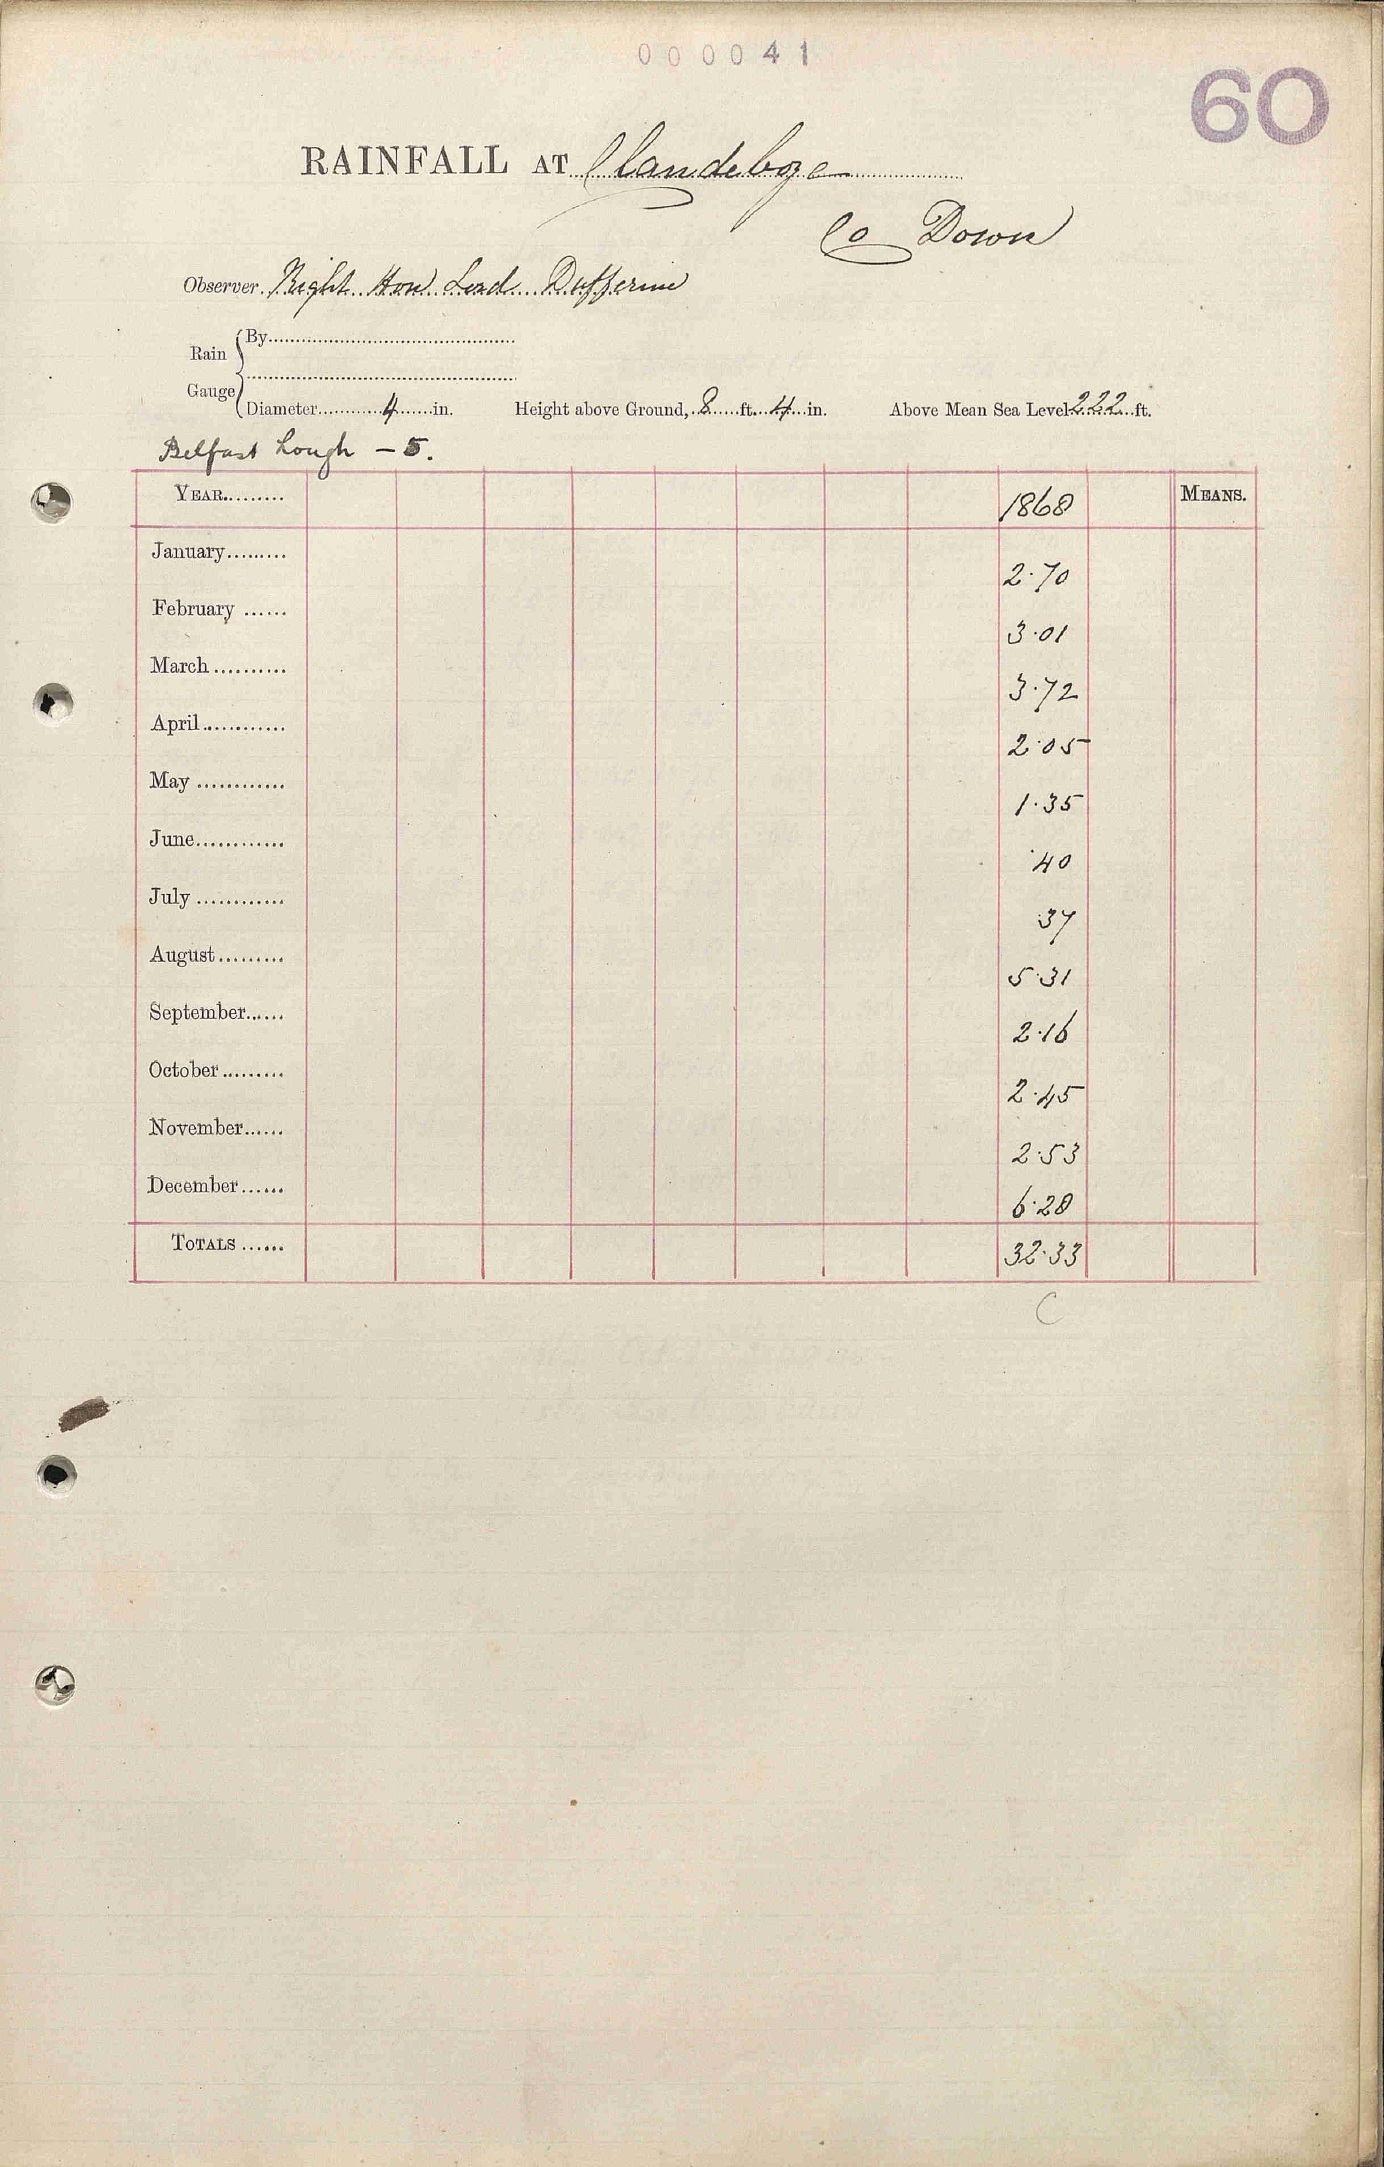 000041
60
RAINFALL AT Clandeboye
Co Down
Observer. Right Hon Lord Dufferin
Rain Gauge By
Diameter 4 in. Height above Ground, 8 ft. 4 in. Above Mean Sea Level 222 ft.
Belfast Lough – 5.
YEAR 1868 MEANS.
January 2.70
February 3.01
March 3.72
April 2.05
May 1.35
June .40
July .37
August 5.31
September 2.16
October 2.45
November 2.53
December 6.28
TOTALS 32.33
C